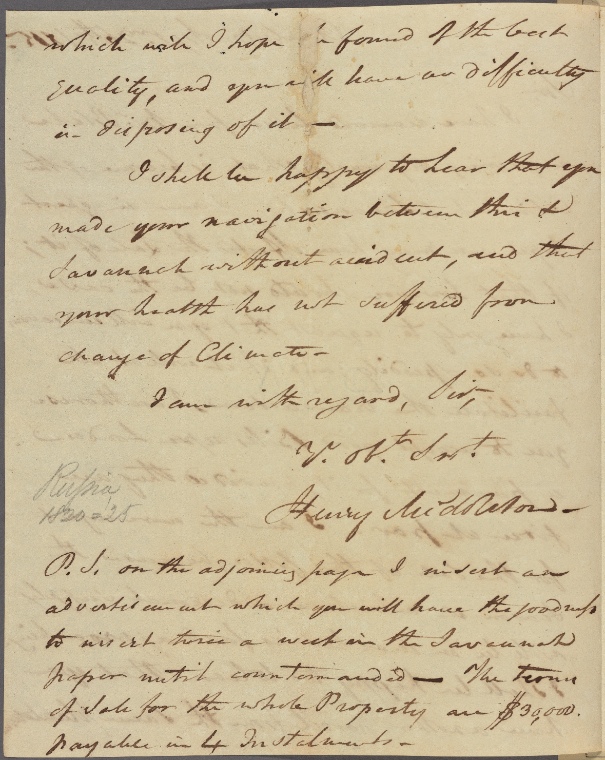 which will I hope be found of the best
quality, and you will have no difficulty
in disposing of it —
I shall be happy to hear that you
made your navigation between this &
Savannah without accident, and that
your health has not suffered from
change of Climate -
I am with regard, Sir,
Y. Obt. Svt.
Henry Middleton -
Russia
1820-25
P.S. on the adjoining page I insert an
advertisement which you will have the goodness
to insert twice a week in the Savannah
paper until countermanded — The terms
of Sale for the whole Property are $30,000.
payable in 4 Instalments -